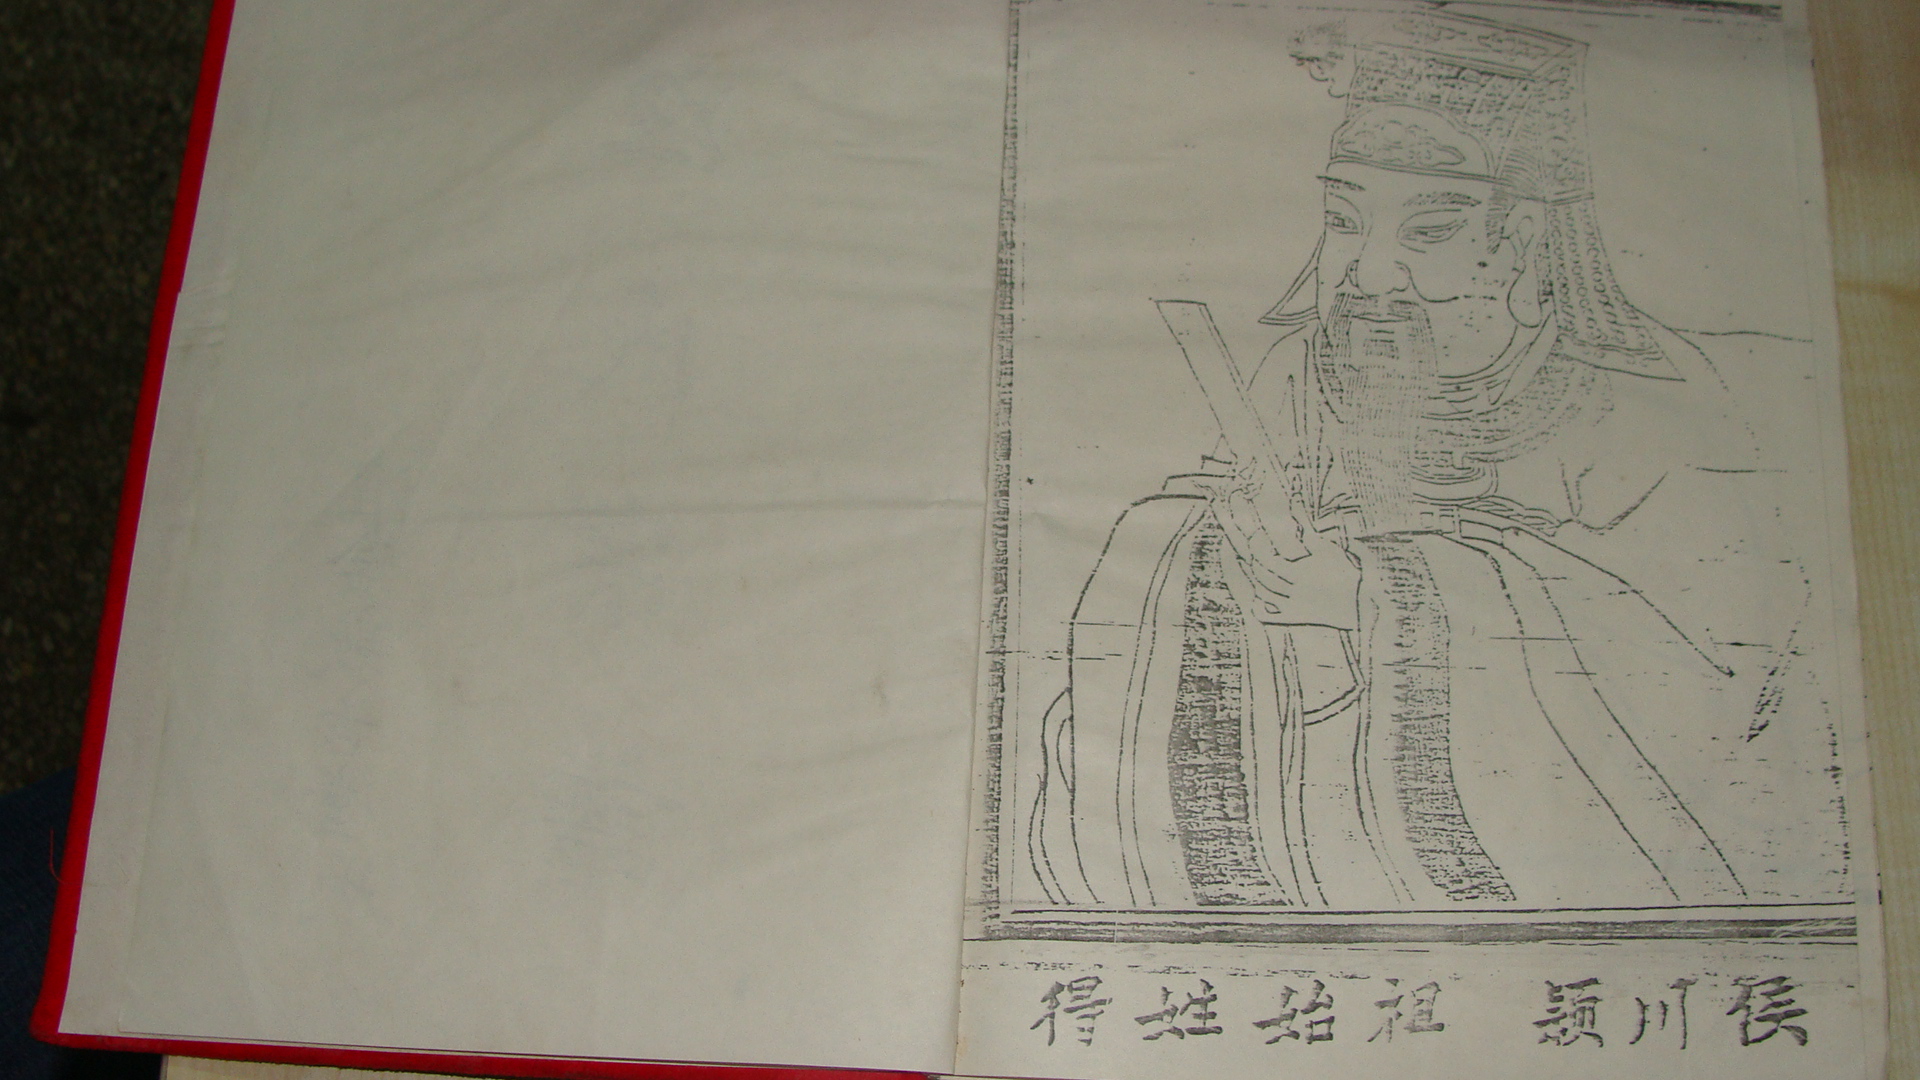 得姓始祖 潁川侯